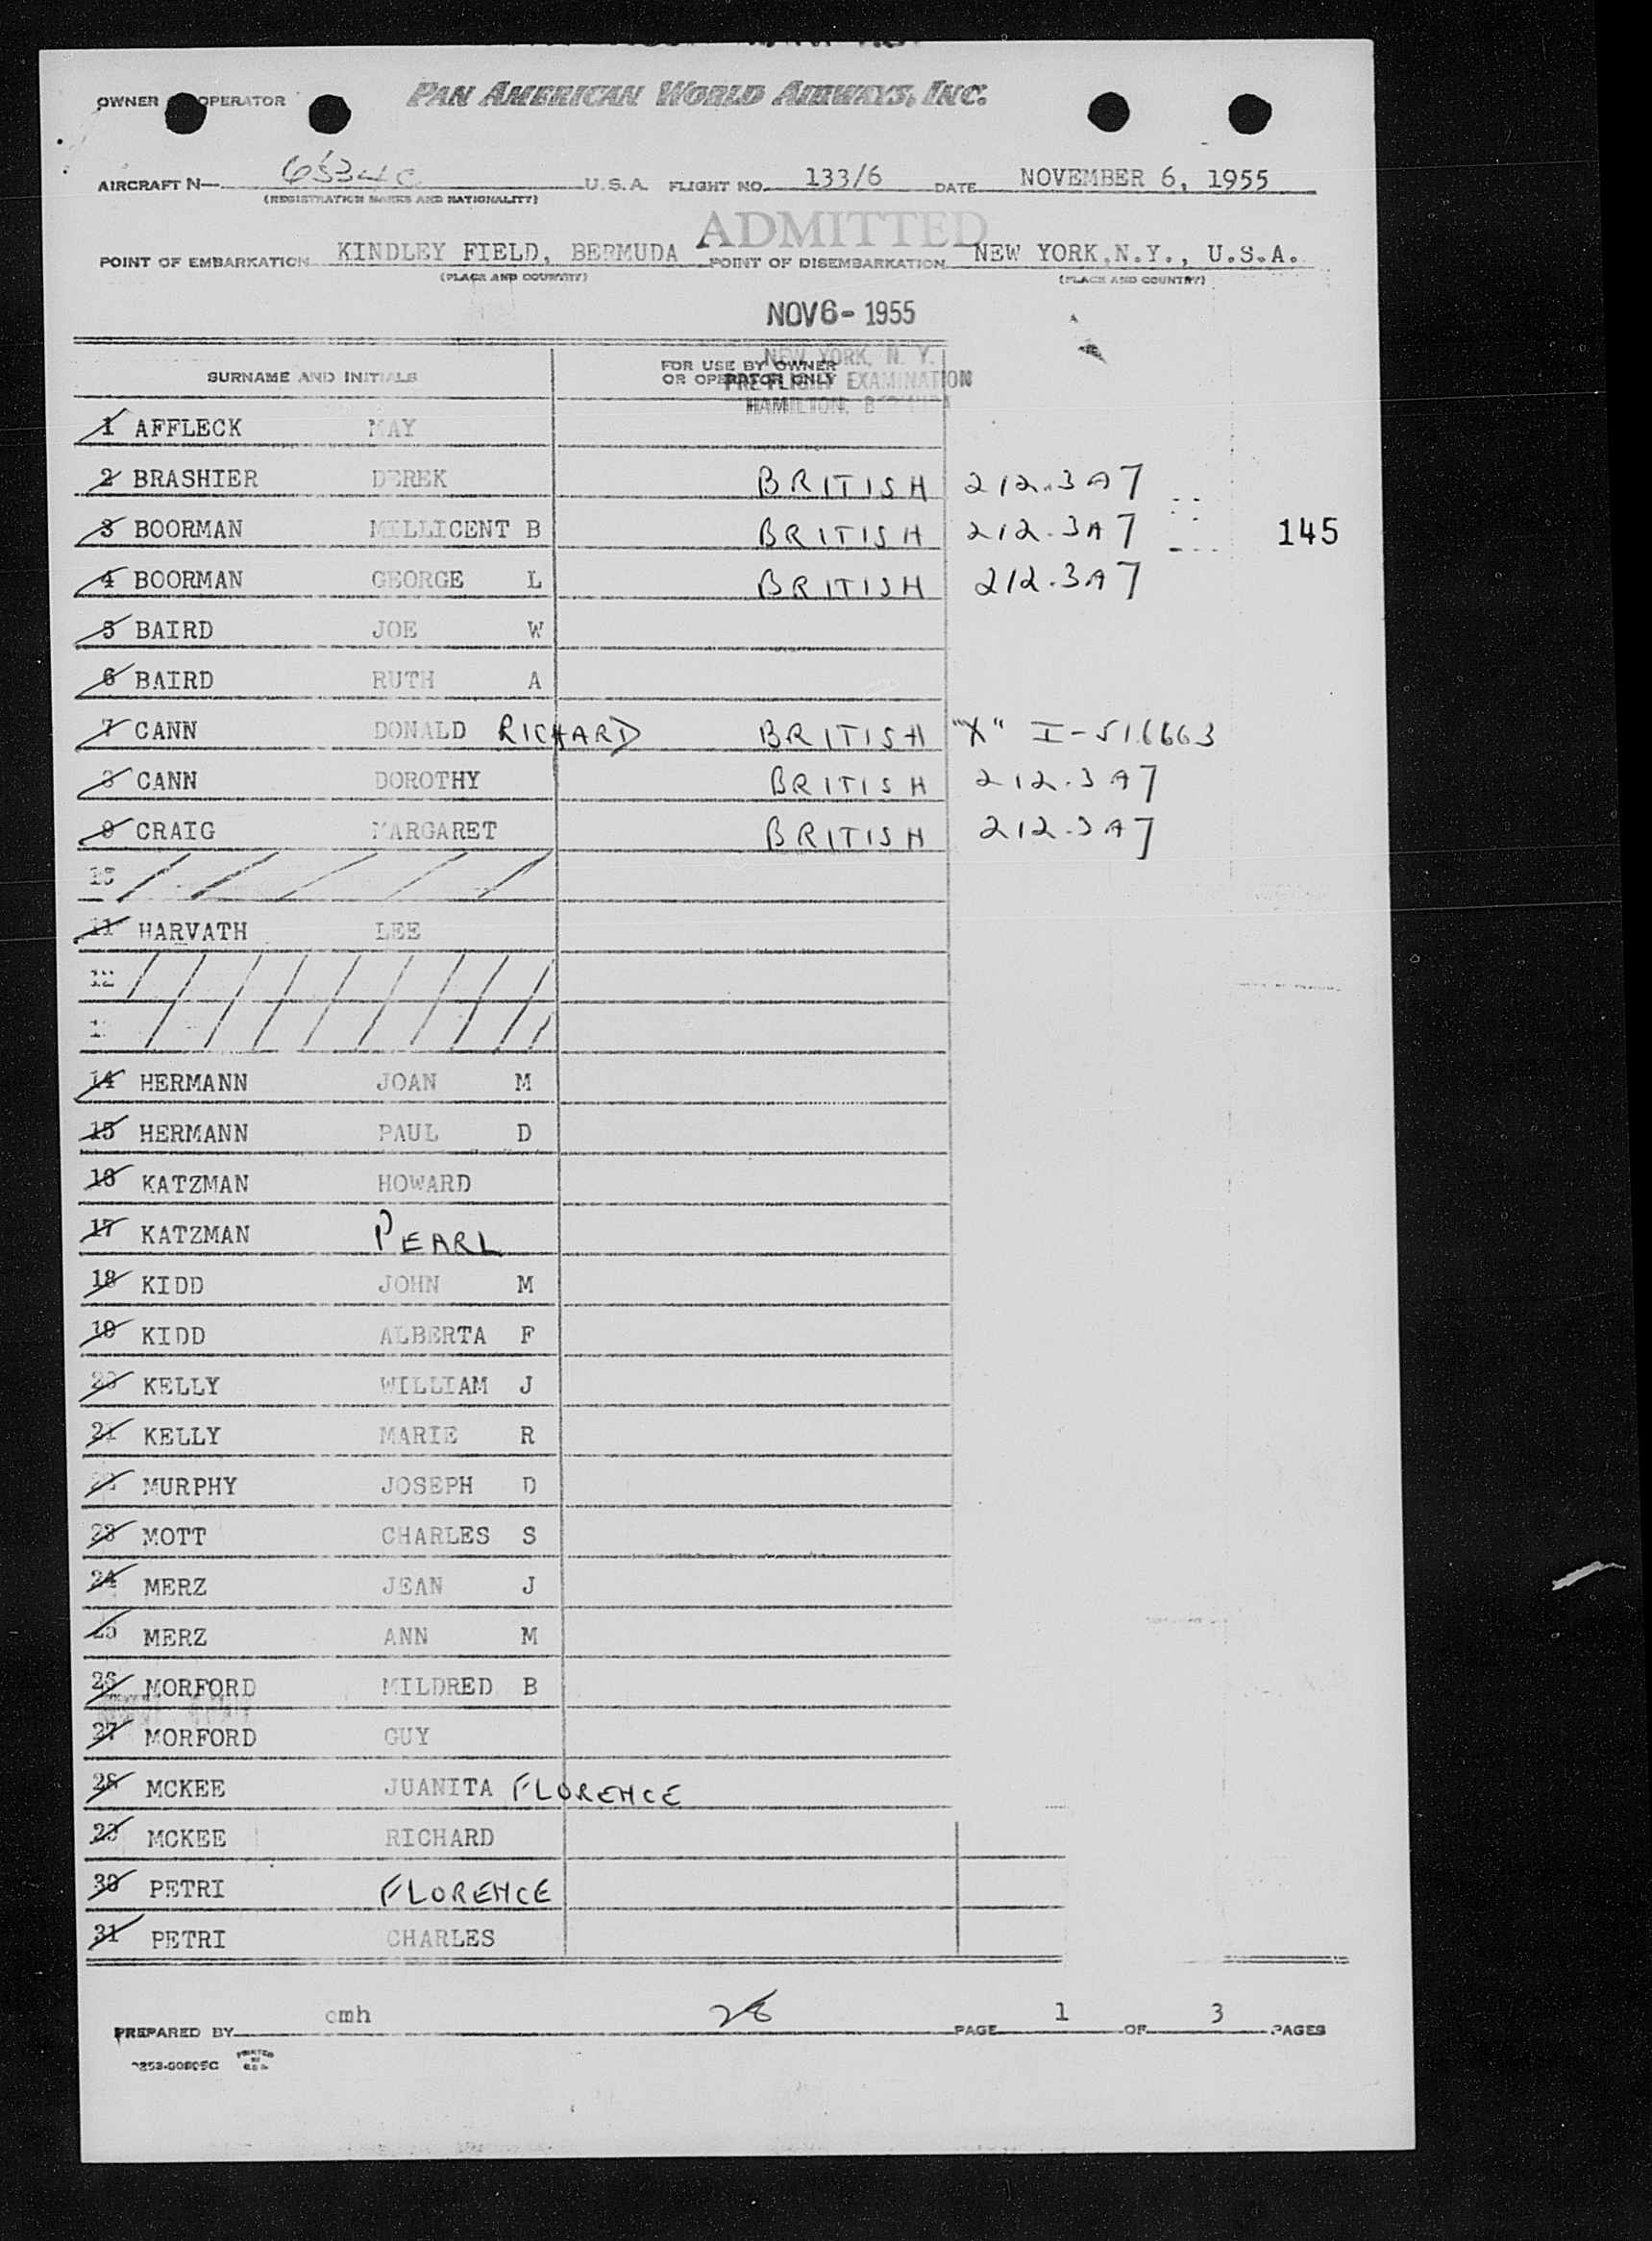 OWNER OPERATOR PAN AMERICAN WORLD AIRWAYS, INC.
AIRCRAFT N— 6534C U.S.A. FLIGHT NO. 133/6 DATE NOVEMBER 6, 1955
(REGISTRATION MARKS AND NATIONALITY)
ADMITTED
POINT OF EMBARKATION KINDLEY FIELD, BERMUDA POINT OF DISEMBARKATION NEW YORK,N.Y., U.S.A.
(PLACE AND COUNTRY) (PLACE AND COUNTRY)
NOV 6- 1955
NEW YORK, N. Y.
SURNAME AND INITIALS FOR USE BY OWNER OR OPERATOR ONLY
PRE-FLIGHT EXAMINATION
HAMILTON, BERMUDA
1 AFFLECK MAY
2 BRASHIER DEREK BRITISH 212.3A7
3 BOORMAN MILLICENT B BRITISH 212.3A7 145
4 BOORMAN GEORGE L BRITISH 212.3A7
5 BAIRD JOE W
6 BAIRD RUTH A
7 CANN DONALD RICHARD BRITISH "X" I-516663
8 CANN DOROTHY BRITISH 212.3A7
9 CRAIG MARGARET BRITISH 212.3A7
10
11 HARVATH LEE
12
14 HERMANN JOAN M
15 HERMANN PAUL D
16 KATZMAN HOWARD
17 KATZMAN PEARL
18 KIDD JOHN M
19 KIDD ALBERTA F
20 KELLY WILLIAM J
21 KELLY MARIE R
22 MURPHY JOSEPH D
23 MOTT CHARLES S
24 MERZ JEAN J
25 MERZ ANN M
26 MORFORD MILDRED B
27 MORFORD GUY
28 MCKEE JUANITA FLORENCE
29 MCKEE RICHARD
30 PETRI FLORENCE
31 PETRI CHARLES
PREPARED BY cmh 28 PAGE 1 OF 3 PAGES
PRINTED IN U.S.A.